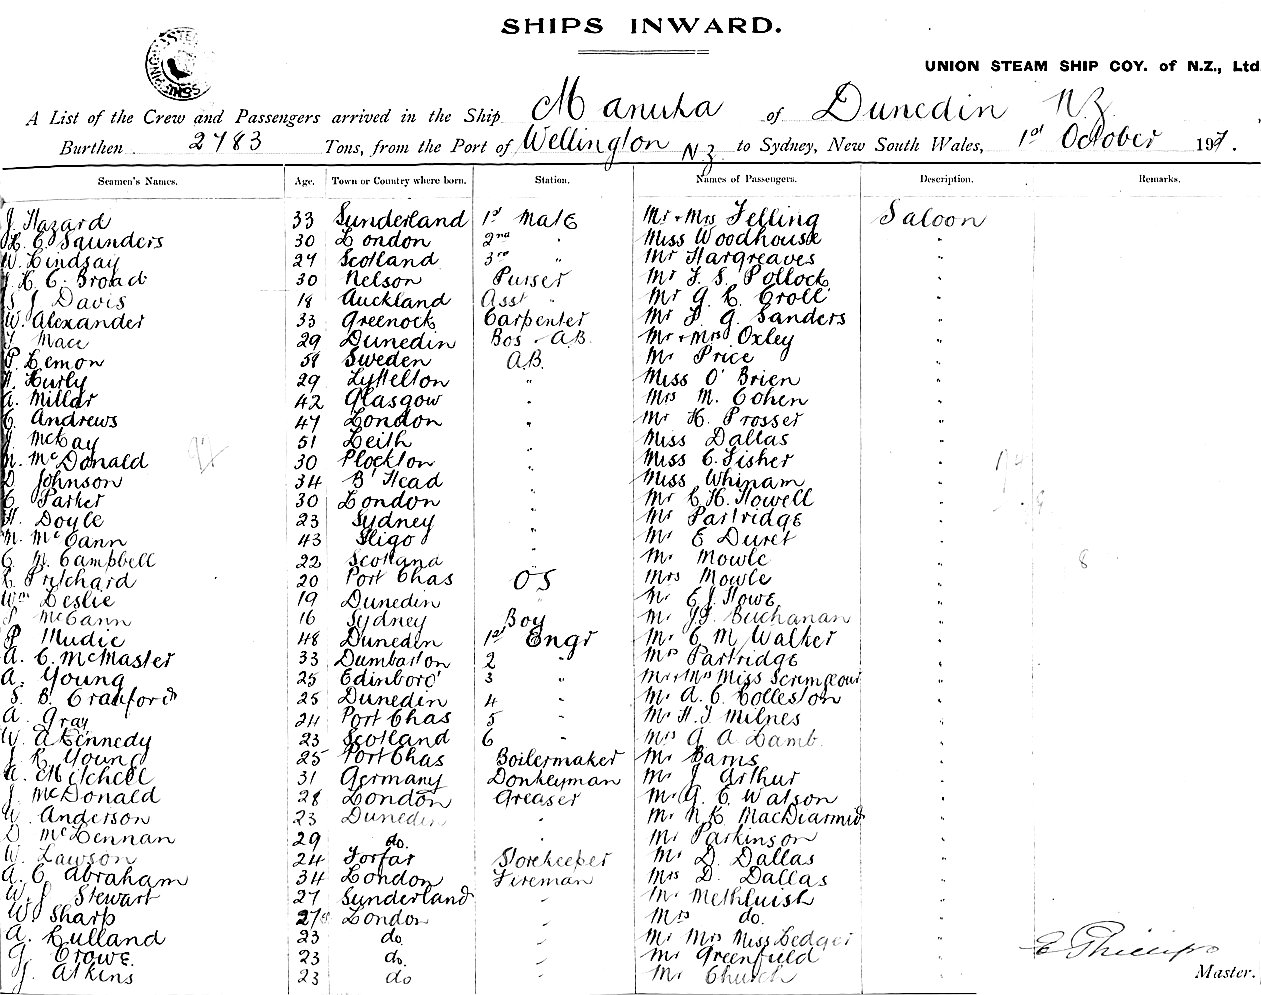 SHIPS INWARD.
UNION STEAM SHIP COY. of N.Z., Ltd
A List of the Crew and Passengers arrived in the Ship Manuka of Dunedin NZ
Burthen 2783 Tons, from the Port of Wellington NZ to Sydney, New South Wales, 1st October 1907.
Seamen's Names. Age. Town or Country where born. Station. Names of Passengers. Description. Remarks.
J. Hazard 33 Sunderland 1st Mate Mr & Mrs Felling Saloon
H. C. Saunders 30 London 2nd " Miss Woodhouse "
W. Lindsay 27 Scotland 3rd " Mr Hargreaves "
J. H. C. Broad 30 Nelson Purser Mr F. S. Pollock "
S J Davis 18 Auckland Asst " Mr G. E Croll "
W. Alexander 33 Greenock Carpenter Mr F. G. Sanders "
J Mace 29 Dunedin Bos - AB. Mr & Mrs Oxley "
P. Lemon 51 Sweden AB. Mr Price "
H. Hurly 29 Lyttelton " Miss O'Brien "
A. Millar 42 Glasgow " Mrs M. Cohen "
C. Andrews 47 London " Mr H. Prosser "
J. McKay 51 Leith " Miss Dallas "
N. McDonald 30 Plockton " Miss C. Fisher "
D Johnson 34 B' Head " Miss Whinam "
C. Parker 30 London " Mr C. H. Howell "
H. Doyle 23 Sydney " Mr Partridge "
M. McCann 43 Sligo " Mr E Duret "
C. N. Campbell 22 Scotland " Mr Mowle " 8
C Pritchard 20 Port Chas OS Mrs Mowle "
Wm Leslie 19 Dunedin " Mr E J. Howe "
P McCann 16 Sydney Boy Mr J. F. Buchanan "
P. Mudie 48 Dunedin 1st Engr Mr C. M Walker "
A. C. McMaster 33 Dumbarton 2 " Mrs Partridge "
A. Young 25 Edinboro' 3 " Mr & Mrs Miss Scrimgeour "
S. B. Cranford 25 Dunedin 4 " Mr A. C. Colleston "
A. Gray 24 Port Chas 5 " Mr H. J. Milnes "
W. A Kennedy 23 Scotland 6 " Mrs G A Lamb. "
J. R. Young 25 Port Chas Boilermaker Mr Barns "
A. Mitchell 31 Germany Donkeyman Mr J Arthur "
J. McDonald 28 London Greaser Mr G. C. Watson "
W. Anderson 23 Dunedin " Mr N. K. MacDiarmid "
D McLennan 29 do. " Mr Parkinson "
W. Lawson 24 Forfar Storekeeper Mr D. Dallas "
A. C. Abraham 34 London Fireman Mrs D. Dallas "
W. J Stewart 27 Sunderland " Mr Methluish "
W Sharp 27 London " Mrs do. "
A. Lulland 23 do. " Mr Mrs Miss Ledger "
G. Crowe. 23 do. " Mr Greenfield "
J. Atkins 23 do " Mr Church "
E Phillips
Master.